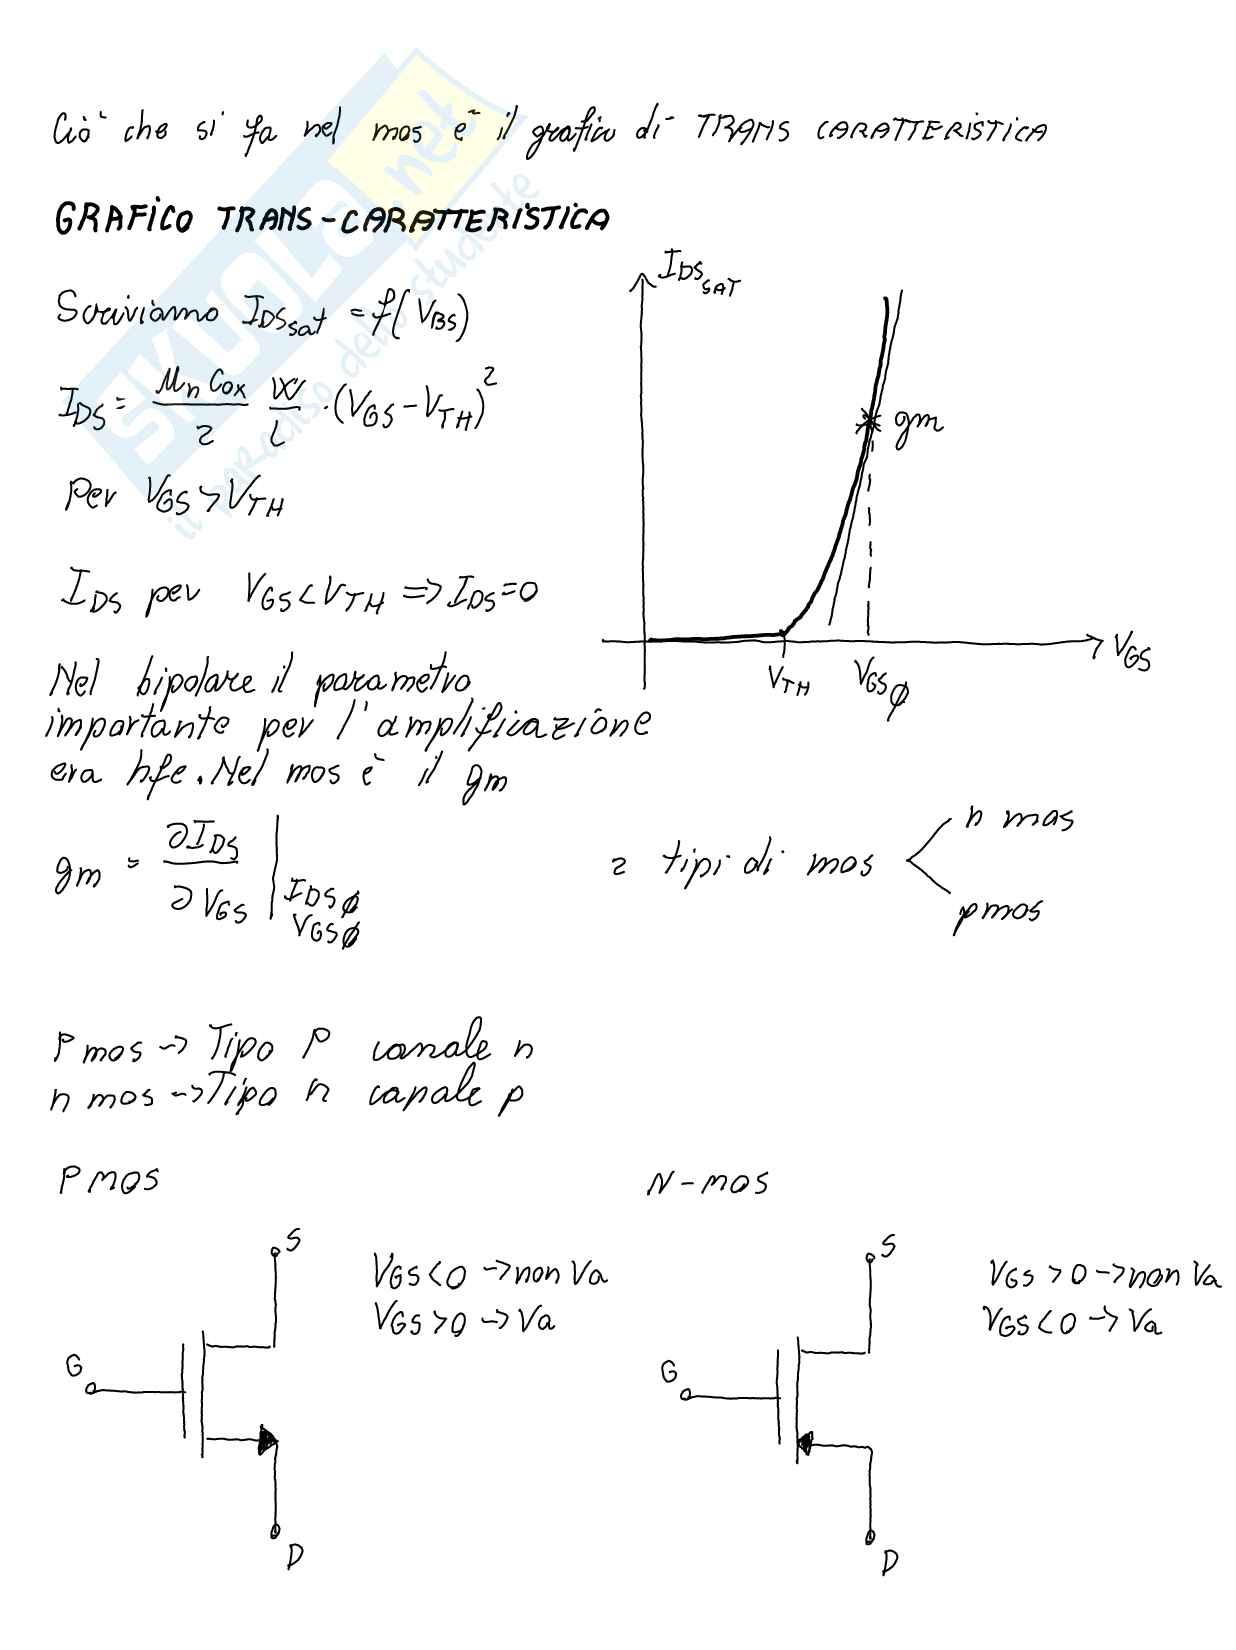 Ciò che si fa nel mos è il grafico di TRANS CARATTERISTICA
GRAFICO TRANS-CARATTERISTICA
Scriviamo I_DSsat = f(V_BS)
I_DS = μn Cox / 2 W / L · (V_GS - V_TH)²
Per V_GS > V_TH
I_DS per V_GS < V_TH => I_DS = 0
I_DS SAT
gm
V_TH
V_GSφ
V_GS
Nel bipolare il parametro
importante per l'amplificazione
era hfe. Nel mos è il gm
gm = ∂I_DS / ∂V_GS | I_DSφ
V_GSφ
2 tipi di mos
n mos
pmos
P mos -> Tipo P canale n
n mos -> Tipo n canale p
PMOS
S
V_GS < 0 -> non Va
V_GS > 0 -> Va
G
D
N-MOS
S
V_GS > 0 -> non Va
V_GS < 0 -> Va
G
D
SKUOLA.net
il paradiso dello studente